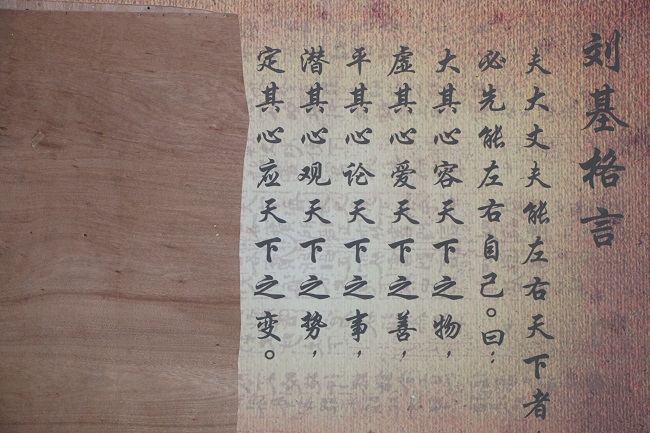 刘基格言
夫大丈夫能左右天下者，
必先能左右自己。曰：
大其心容天下之物，
虚其心爱天下之善，
平其心论天下之事，
潜其心观天下之势，
定其心应天下之变。